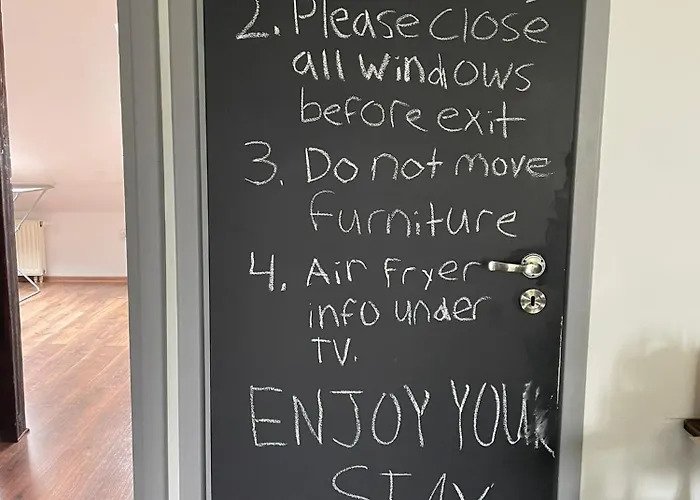 2. Please close
all windows
before exit
3. Do not move
furniture
4. Air fryer
info under
TV.
ENJOY YOUR
STAY